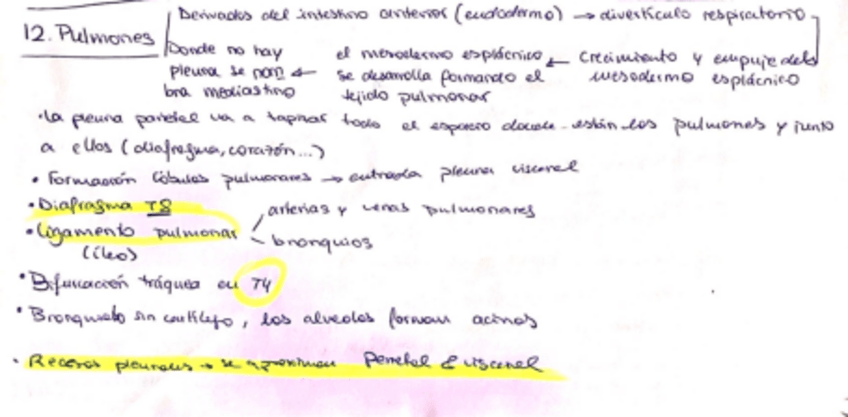 12. Pulmones
Derivados del intestino anterior (endodermo) → divertículo respiratorio
Crecimiento y empuje del mesodermo esplácnico
el mesodermo esplácnico ← se desarrolla formando el tejido pulmonar
Donde no hay pleura se nombra mediastino ←
· La pleura parietal va a tapizar todo el espacio donde están los pulmones y junto
a ellos (diafragma, corazón...)
· Formación lóbulos pulmonares → entrada pleura visceral
· Diafragma T8
· Ligamento pulmonar
(íleo)
arterias y venas pulmonares
bronquios
· Bifurcación tráquea en T4
· Bronquiolo sin cartílago, los alveolos forman acinos
· Recesos pleurales → se aproximan Parietal & visceral